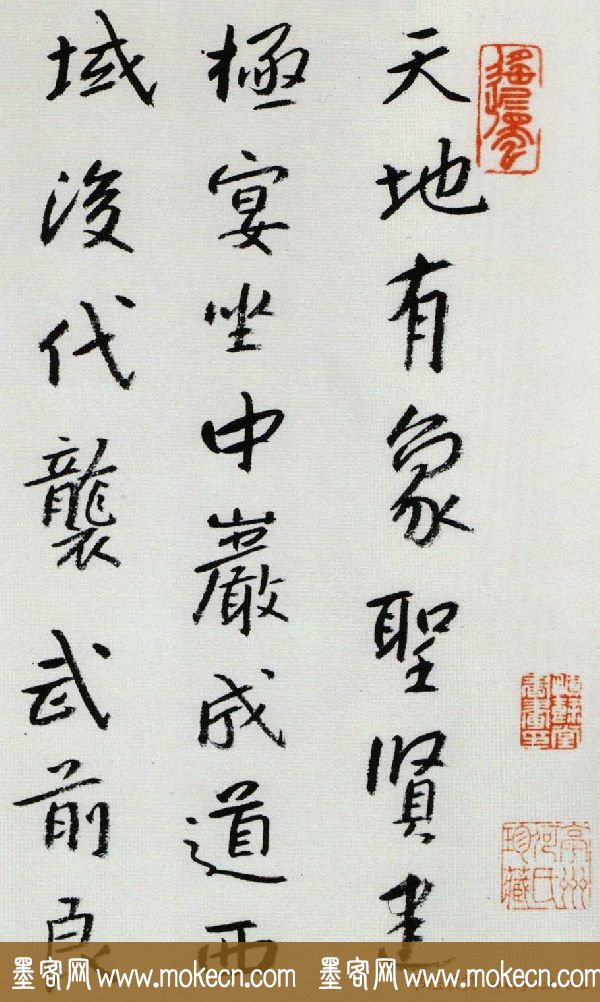 天地有象聖賢建
極宴坐中巖成道西
域後代襲武前良
墨客网www.mokecn.com 墨客网www.mokecn.com